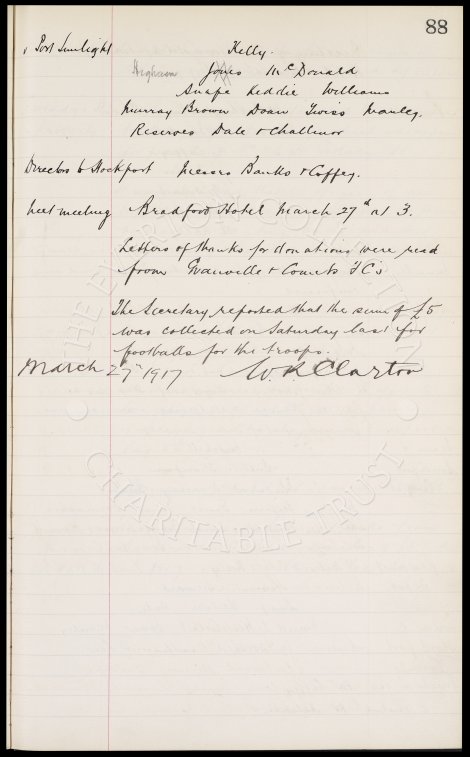 88
v Port Sunlight Kelly.
Higham Jones McDonald
Snape Kiddie Williams
Murray Brown Doan Twiss Manley.
Reserves Dale & Challinor
Directors to Stockport Messrs Banks & Coffey.
Next meeting Bradford Hotel March 27th at 3.
Letters of thanks for donations were read
from Granville & Comets FC's
The Secretary reported that the sum of £5
was collected on Saturday last for
footballs for the troops.
March 27th 1917 W. R. Clayton
THE EVERTON COLLECTION
CHARITABLE TRUST